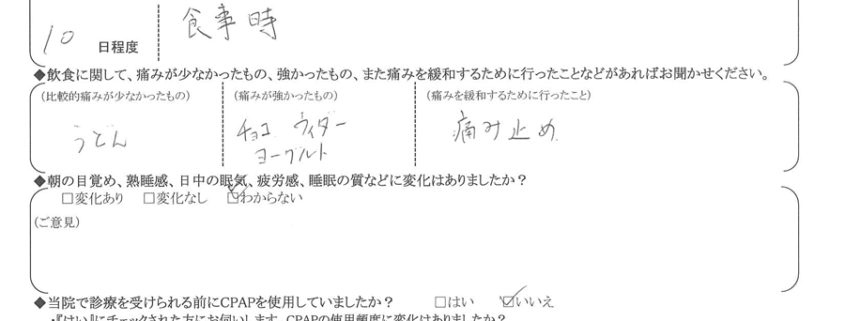 10 日程度 食事時
◆飲食に関して、痛みが少なかったもの、強かったもの、また痛みを緩和するために行ったことなどがあればお聞かせください。
(比較的痛みが少なかったもの) (痛みが強かったもの) (痛みを緩和するために行ったこと)
うどん チョコ ウィダー 痛み止め
ヨーグルト
◆朝の目覚め、熟睡感、日中の眠気、疲労感、睡眠の質などに変化はありましたか?
□変化あり □変化なし ☑わからない
(ご意見)
◆当院で診療を受けられる前にCPAPを使用していましたか? □はい ☑いいえ
・『はい』にチェックされた方にお伺いします。CPAPの使用頻度に変化はありましたか?